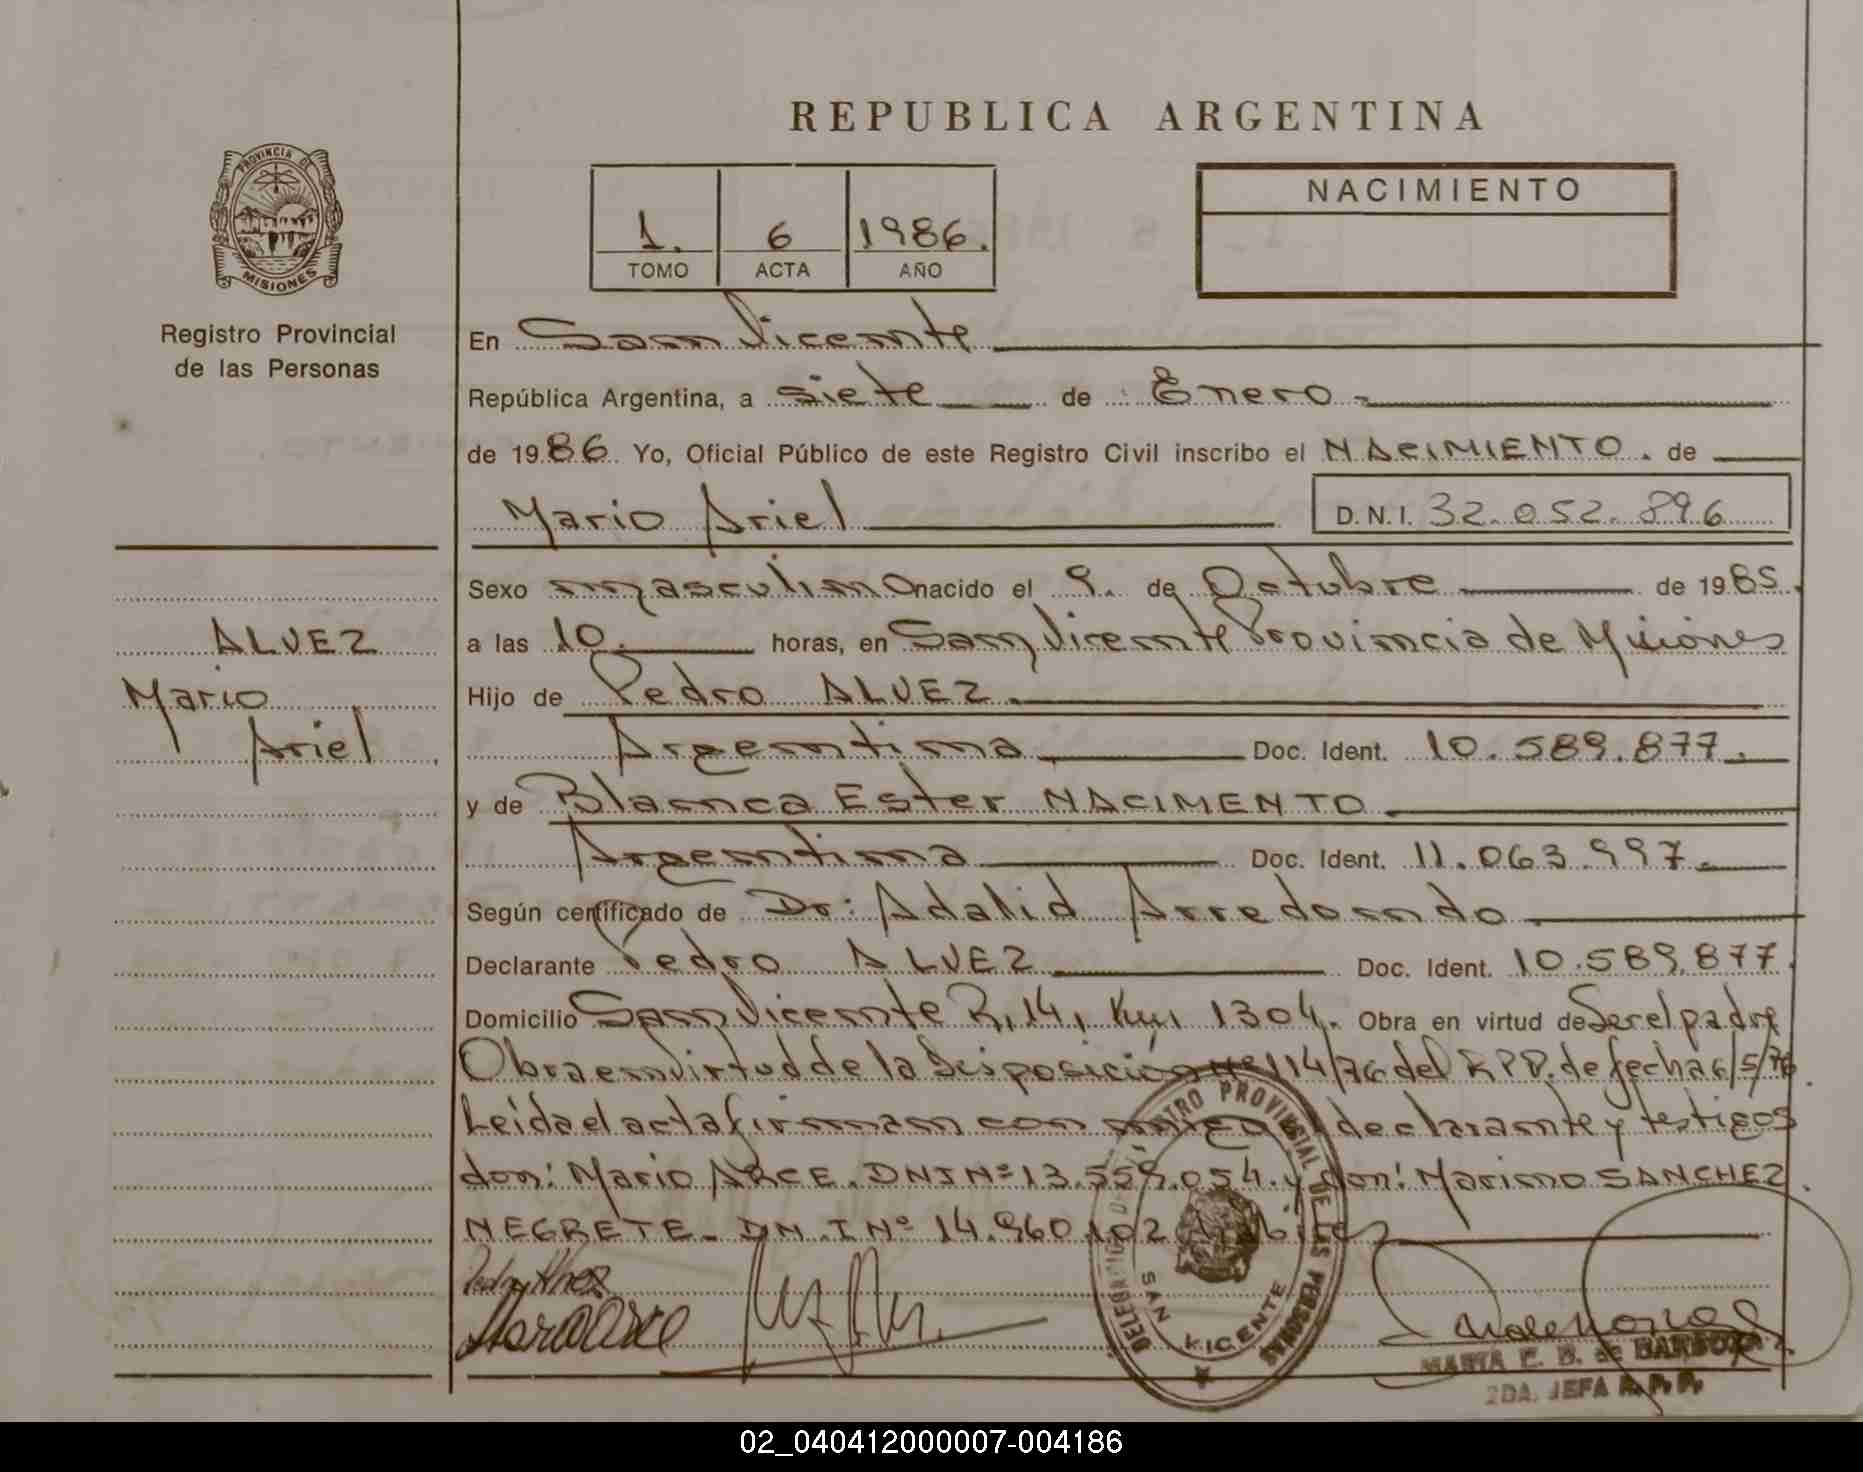 REPUBLICA ARGENTINA
PROVINCIA DE
MISIONES
Registro Provincial
de las Personas
1. 6 1986.
TOMO ACTA AÑO
NACIMIENTO
En San Vicente
República Argentina, a siete de Enero
de 1986 Yo, Oficial Público de este Registro Civil inscribo el NACIMIENTO. de
Mario Ariel D.N.I. 32.052.896
Sexo masculino nacido el 9. de Octubre de 1985.
a las 10. horas, en San Vicente Provincia de Misiones
Hijo de Pedro ALVEZ.
Argentina Doc. Ident. 10.589.877.
y de Blanca Ester NACIMENTO
Argentina Doc. Ident. 11.063.997.
Según certificado de Dr: Adalid Arredondo
Declarante Pedro ALVEZ Doc. Ident. 10.589.877.
Domicilio San Vicente R, 14, Km, 1304. Obra en virtud de Ser el padre
Obra en virtud de la Disposición Nº 114/76 del R.P.P. de fecha 6/5/76.
Leída el acta firman con migo declarante y testigos
don: Mario ARCE. DNI Nº 13.559.054. y don: Marino SANCHEZ
NEGRETE. DN.I Nº 14.960.102
ALVEZ
Mario
Ariel
Pedro Alvez
Mario Arce
REGISTRO PROVINCIAL DE LAS PERSONAS
DELEGACIÓN
SAN VICENTE
MARTA E. B. de BARBOZA
2DA. JEFA R. P. P.
02_040412000007-004186